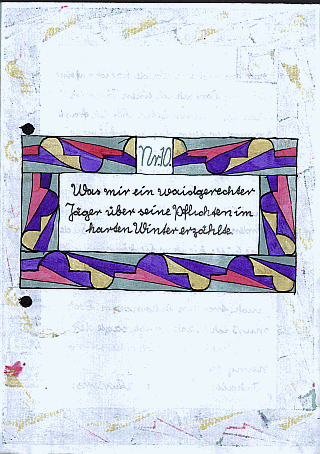 Nr.10.
Was mir ein waidgerechter
Jäger über seine Pflichten im
harten Winter erzählte.